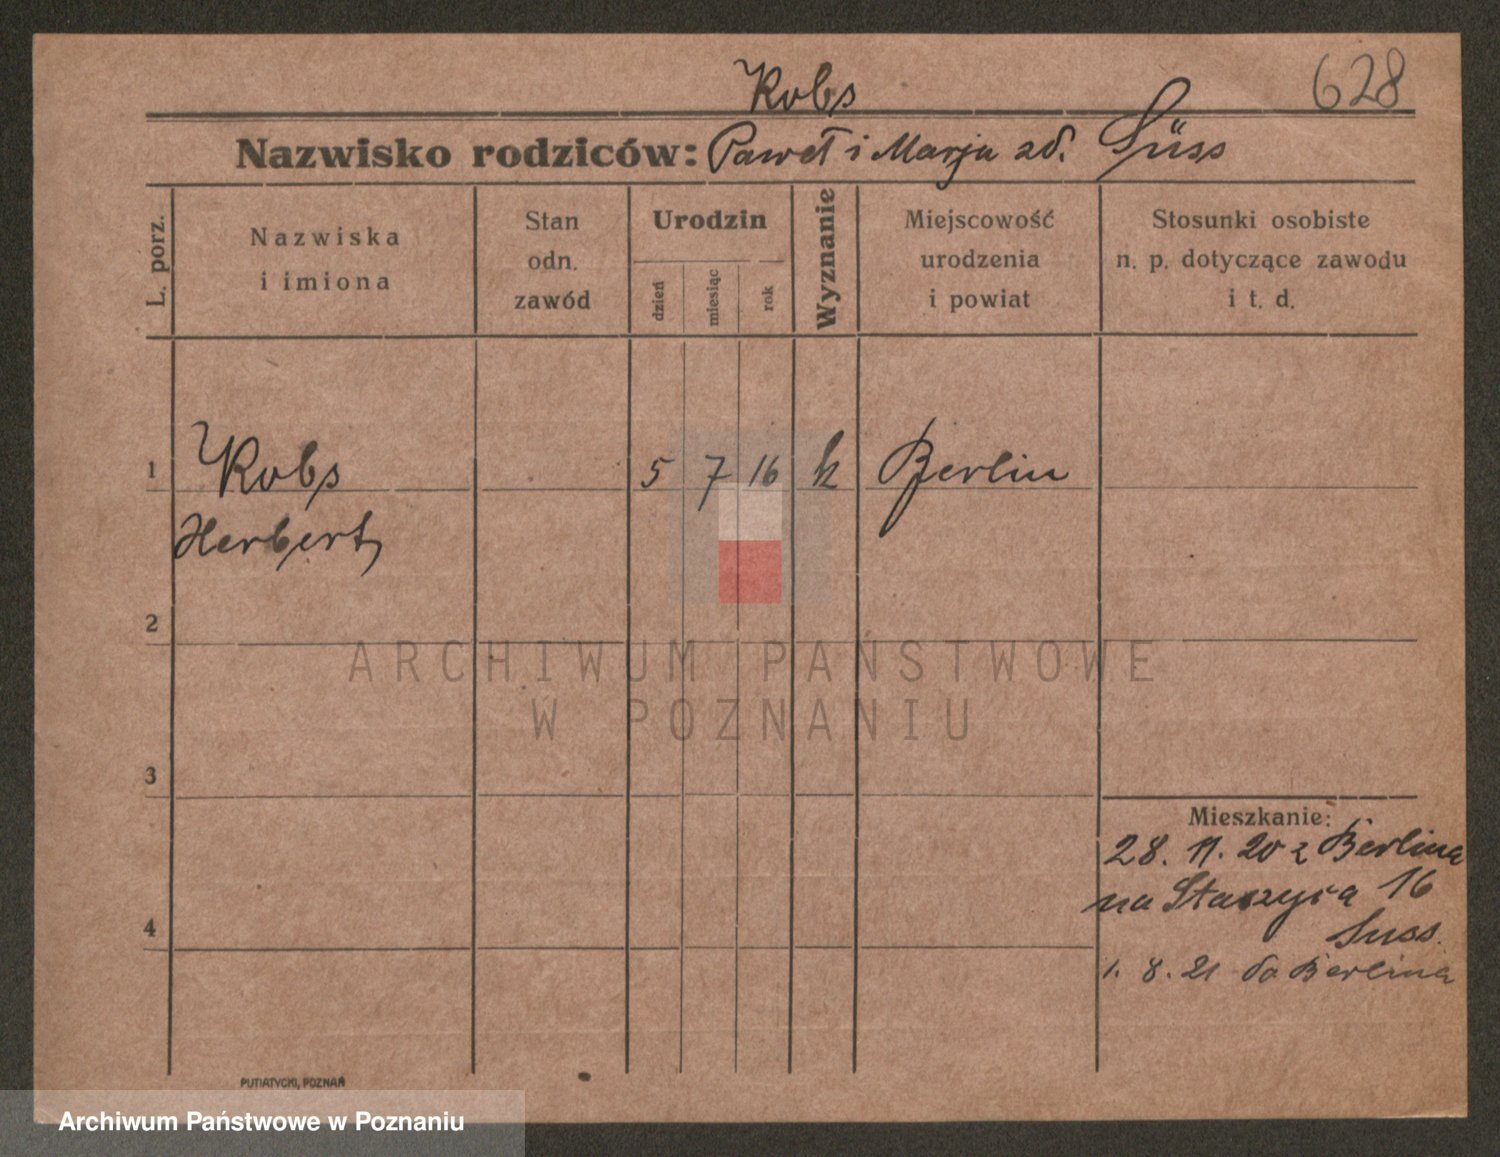 Kobs
628
Nazwisko rodziców: Paweł i Marja zd. Süss
L. porz.
Nazwiska
i imiona
Stan
odn.
zawód
Urodzin
dzień
miesiąc
rok
Wyznanie
Miejscowość
urodzenia
i powiat
Stosunki osobiste
n. p. dotyczące zawodu
i t. d.
1 Kobs 5 7 16 k Berlin
Herbert
2
ARCHIWUM PAŃSTWOWE
W POZNANIU
3
Mieszkanie:
28. 11. 20 z Berlina
na Staszyca 16
Suss.
4
1. 8. 21 do Berlina
PUTIATYCKI, POZNAŃ
Archiwum Państwowe w Poznaniu